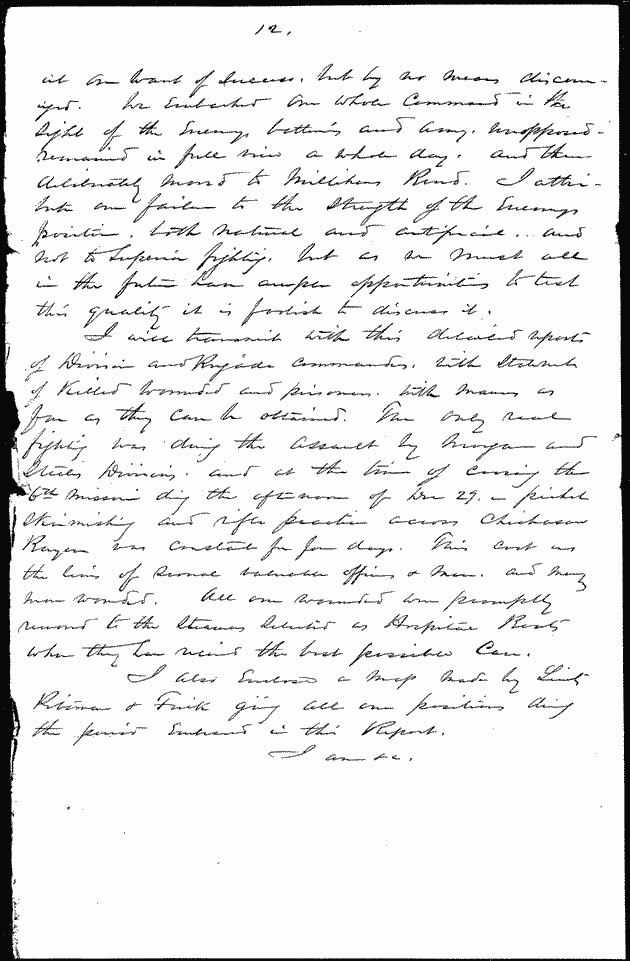 12.
at our want of success, but by no means discour-
aged. We Embarked our whole Command in the
sight of the Enemys batteries and army, unopposed-
remained in full view a whole day, and then
deliberately moved to Millikens Bend. I attri-
bute our failure to the strength of the Enemys
position, both natural and artificial, and
not to Superior fighting, but as we must all
in the future have ample opportunities to test
this quality it is foolish to discuss it.
I will transmit with this detailed reports
of Division and Brigade Commanders, with Statements
of Killed wounded and prisoners, with names as
far as they can be obtained. The only real
fighting was during the assault by Morgan and
Steeles Divisions, and at the time of crossing the
6th Missouri during the afternoon of Dec 29. - picket
Skirmishing and rifle practice across Chickasaw
Bayou was constant for four days. This cost us
the lives of several valuable officers & men, and many
more wounded. All our wounded were promptly
removed to the Steamers Selected as Hospital Boats
where they have received the best possible Care.
I also Enclose a map made by Lieuts
& Frick giving all our positions during
the period Embraced in this Report.
I am &c.